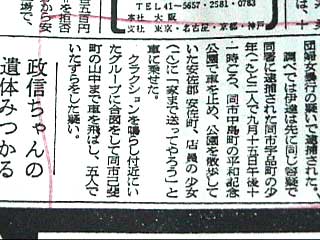 TEL 41-5657・2581・0783
本社 大阪
支社 東京・名古屋・京都・神戸
団婦女暴行の疑いで逮捕された。
調べでは伊達は先に同じ容疑で
同署に逮捕された同市宇品町の少
年と二人で九月十五日午後十
一時ごろ、同市中島町の平和記念
公園で車を止め、公園を散歩して
いた安佐郡安佐町、店員の少女
に「家まで送ってやろう」と
車に乗せた。
クラクションを鳴らし付近にい
たグループに合図をして同市己斐
町の山中まで車を飛ばし、五人で
いたずらをした疑い。
政信ちゃんの
遺体みつかる